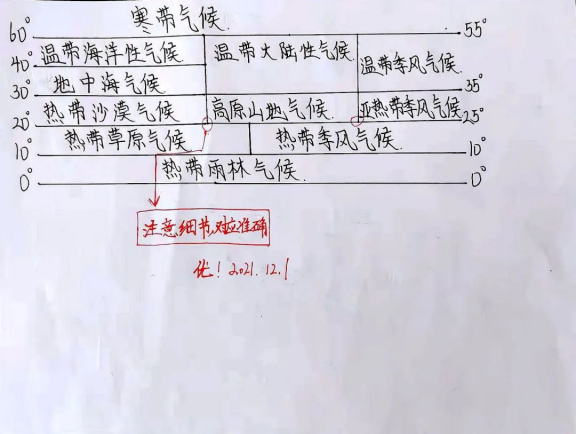 60° 寒带气候 55°
温带海洋性气候 温带大陆性气候 温带季风气候
40°
地中海气候
30° 35°
热带沙漠气候 高原山地气候 亚热带季风气候
20° 25°
热带草原气候 热带季风气候
10° 10°
热带雨林气候
0° 0°
注意细节,对应准确
优! 2021.12.1